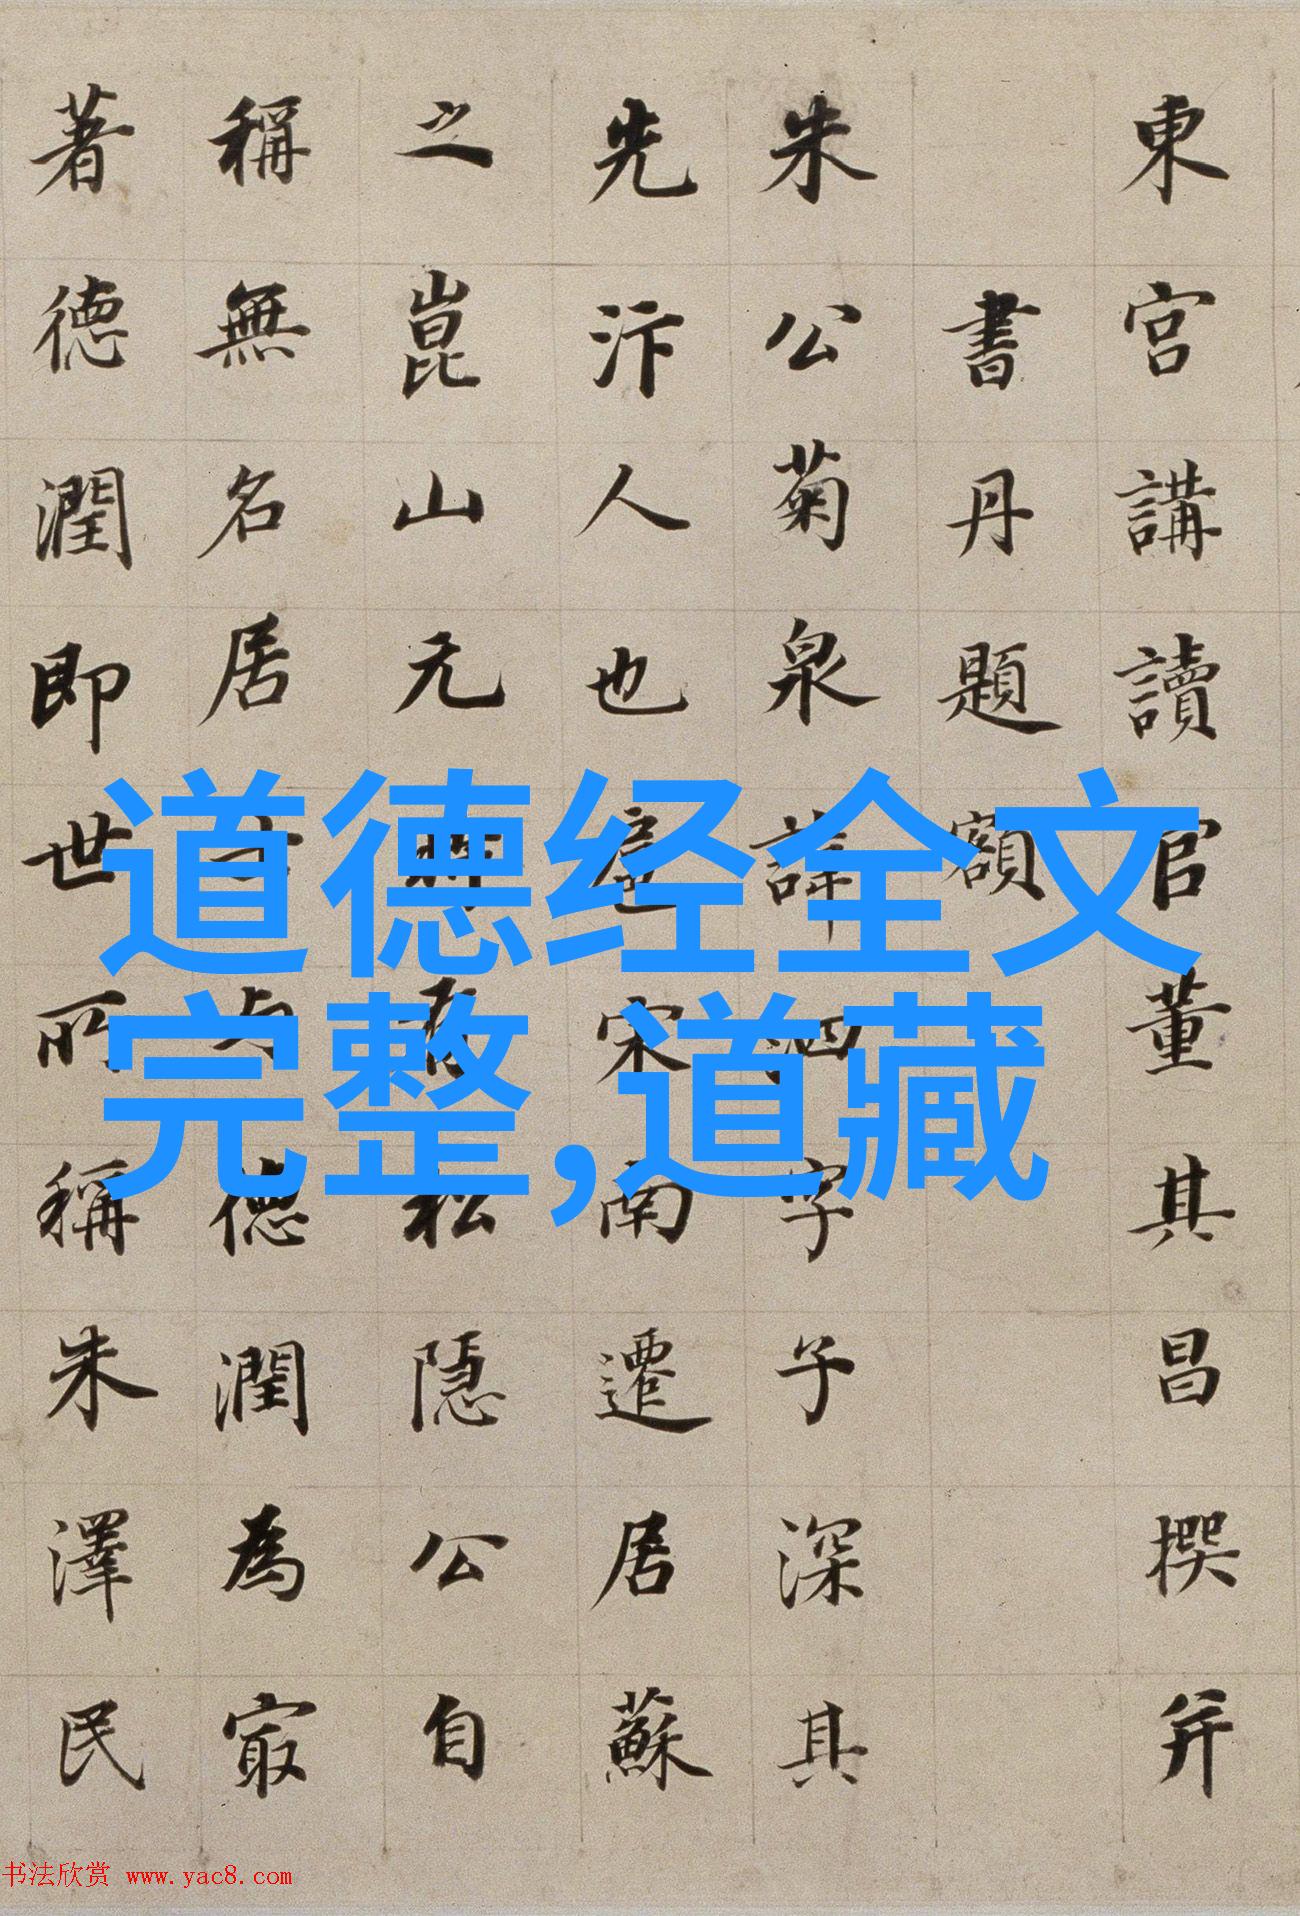 道德经全文
完整,道藏
東宮講讀官董其昌撰并
書丹題額
朱公菊泉諱泗字子深其
先汴人也扈宋南遷居蘇
之崑山元有松隱公自
稱無名居士德潤為㝡
著德潤即世所稱朱澤民
书法欣赏 www.yac8.com